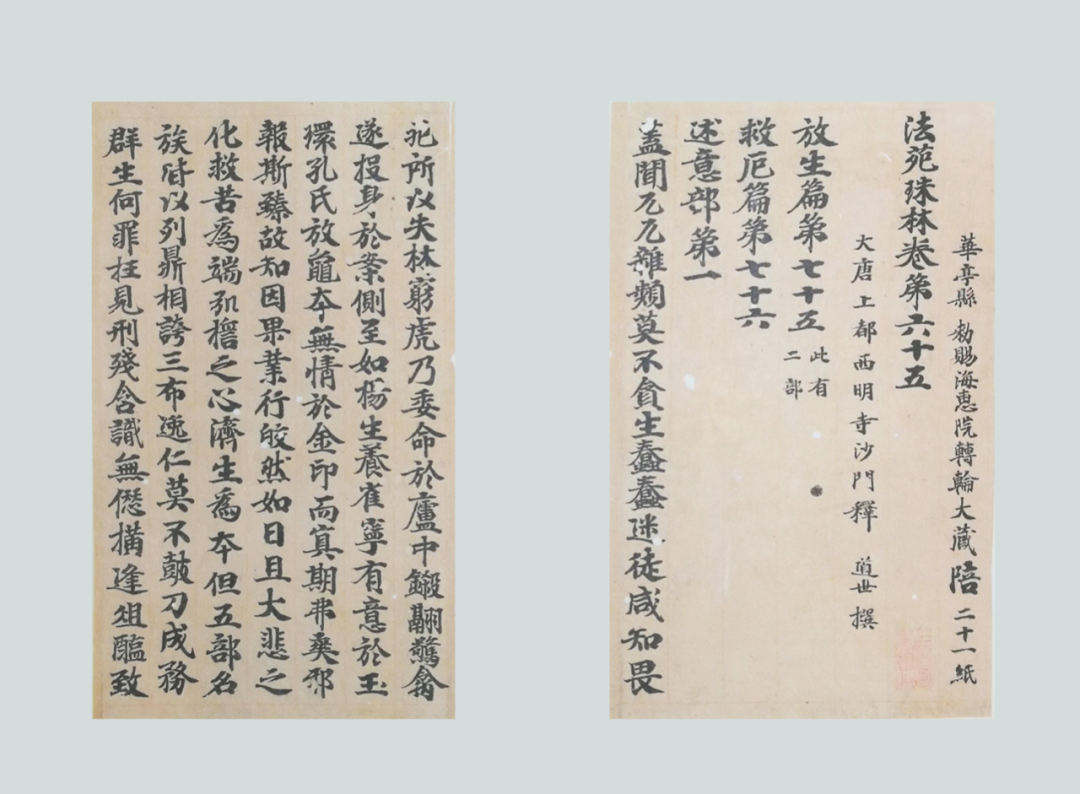 華亭縣 勑賜海惠院轉輪大藏 陪 二十一紙
法苑珠林卷第六十五
大唐上都西明寺沙門釋 道世 撰
放生篇第七十五 此有二部
救厄篇第七十六
述意部第一
蓋聞元元雜類莫不貪生蠢蠢迷徒咸知畏
死所以失林窮虎乃委命於廬中鎩翮驚禽
遂投身於案側至如楊生養雀寧有意於玉
環孔氏放龜本無情於金印而冥期弗爽邪
報斯臻故知因果業行皎然如日且大悲之
化救苦為端弘擔之心濟生為本但五部名
族皆以列鼎相誇三布逸仁莫不鼓刀成務
群生何罪抂見刑殘含識無僁搆逢俎醢致